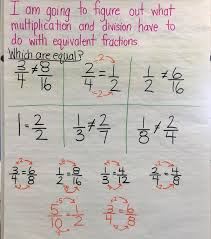 I am going to figure out what
multiplication and division have to
do with equivalent fractions
Which are equal?
3/4 ≠ 8/16 2/4 = 1/2 1/2 ≠ 6/16
1 = 2/2 1/3 ≠ 2/7 1/8 ≠ 2/4
3/4 = 6/8 1/2 = 8/16 1/3 = 4/12 2/4 = 4/8
5/10 = 1/2 3/4 = 6/8